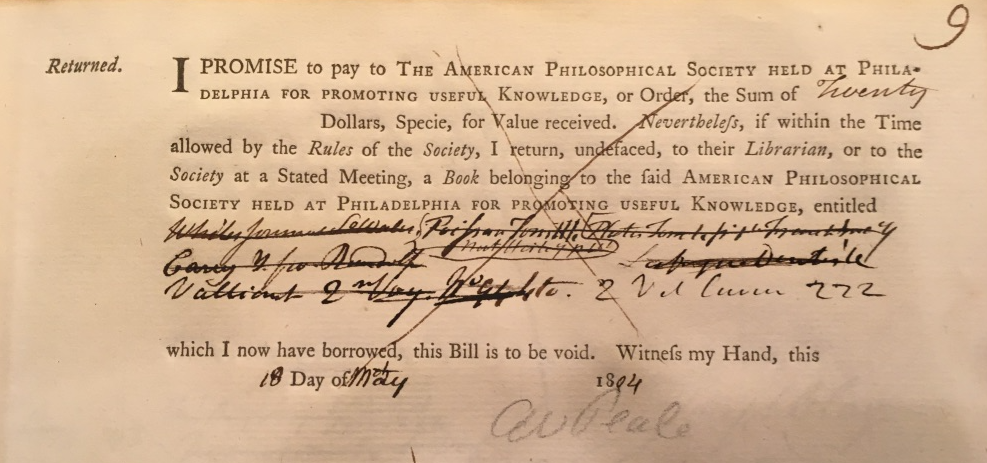 9
Returned.
I PROMISE to pay to THE AMERICAN PHILOSOPHICAL SOCIETY HELD AT PHILA-
DELPHIA FOR PROMOTING USEFUL KNOWLEDGE, or Order, the Sum of Twenty
Dollars, Specie, for Value received. Nevertheleſs, if within the Time
allowed by the Rules of the Society, I return, undefaced, to their Librarian, or to the
Society at a Stated Meeting, a Book belonging to the ſaid AMERICAN PHILOSOPHICAL
SOCIETY HELD AT PHILADELPHIA FOR PROMOTING USEFUL KNOWLEDGE, entitled
Valliant 2nd Voy. 2 Vol 222
which I now have borrowed, this Bill is to be void. Witneſs my Hand, this
18 Day of May 1804
CW Peale